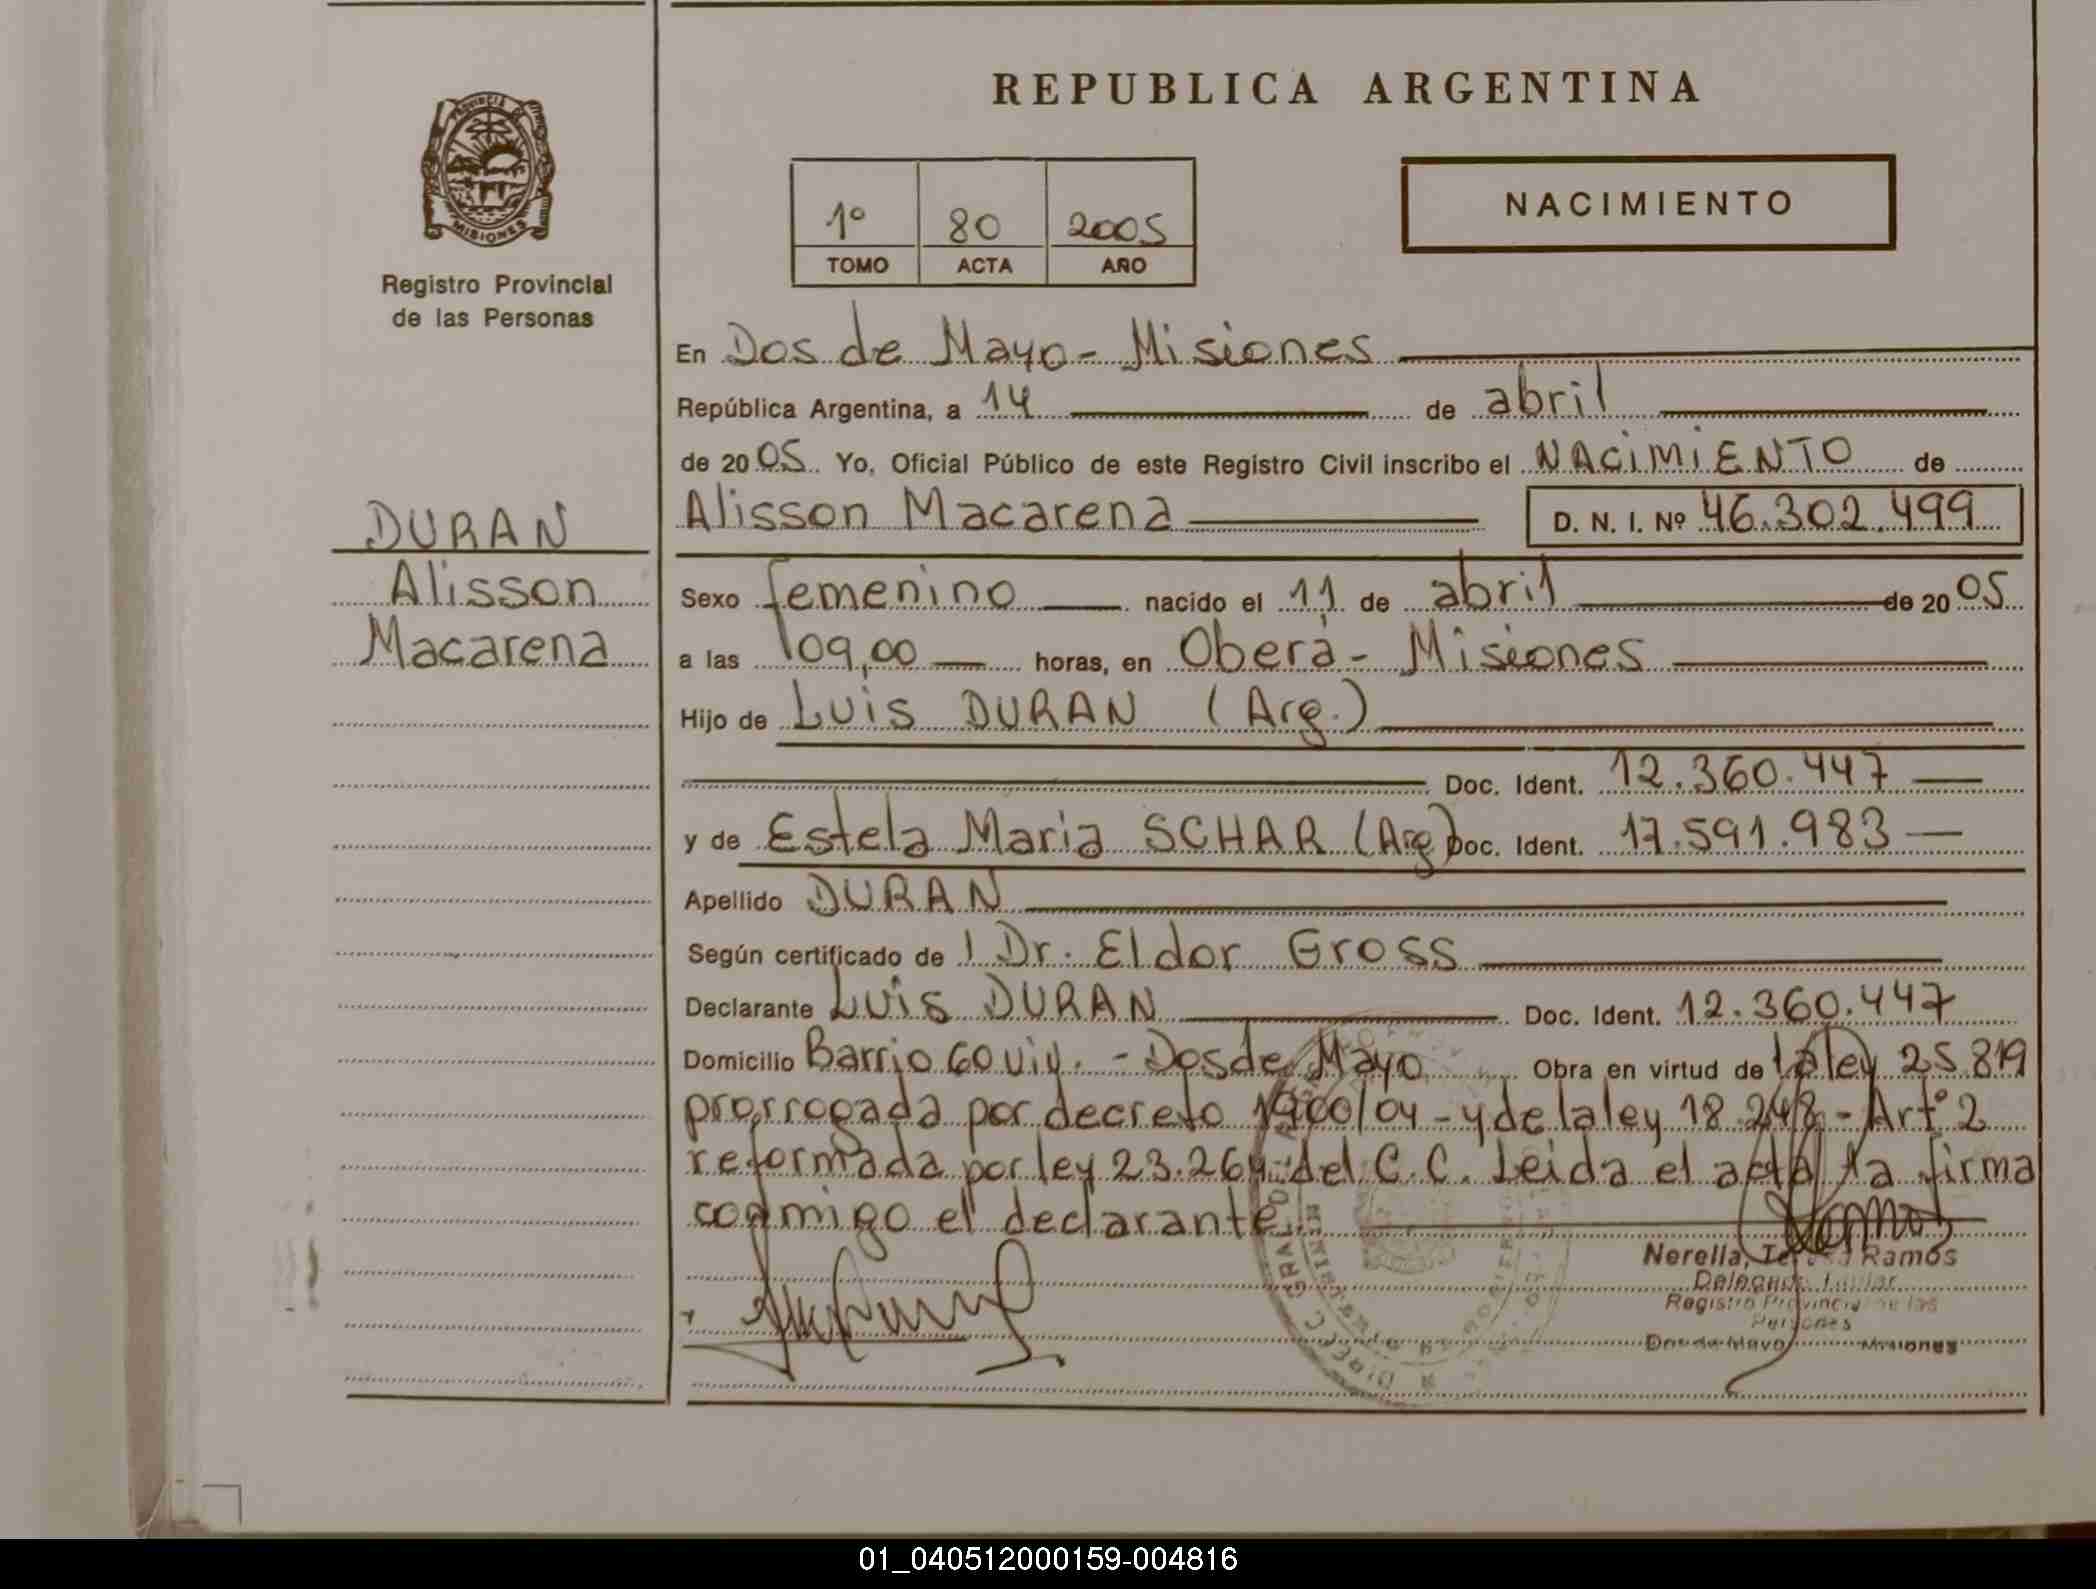 REPUBLICA ARGENTINA
PROVINCIA DE
MISIONES
Registro Provincial
de las Personas
1º 80 2005
TOMO ACTA AÑO
NACIMIENTO
En Dos de Mayo - Misiones
República Argentina, a 14 de abril
de 2005 Yo, Oficial Público de este Registro Civil inscribo el NACIMIENTO de
Alisson Macarena D. N. I. Nº 46.302.499
DURAN
Alisson
Macarena
Sexo femenino nacido el 11 de abril de 2005
a las 09,00 horas, en Oberá - Misiones
Hijo de Luis DURAN (Arg.)
Doc. Ident. 12.360.447
y de Estela Maria SCHAR (Arg) Doc. Ident. 17.591.983
Apellido DURAN
Según certificado de l Dr. Eldor Gross
Declarante Luis DURAN Doc. Ident. 12.360.447
Domicilio Barrio 60 viv. - Dos de Mayo Obra en virtud de la ley 25.819
prorrogada por decreto 1900/04 - y de la ley 18.248 - Artº 2
reformada por ley 23.264 - del C.C. Leida el acta la firma
conmigo el declarante.
Nerella, Ramos
Delegada Titular
Registro Provincial de las
Personas
Dos de Mayo Misiones
01_040512000159-004816